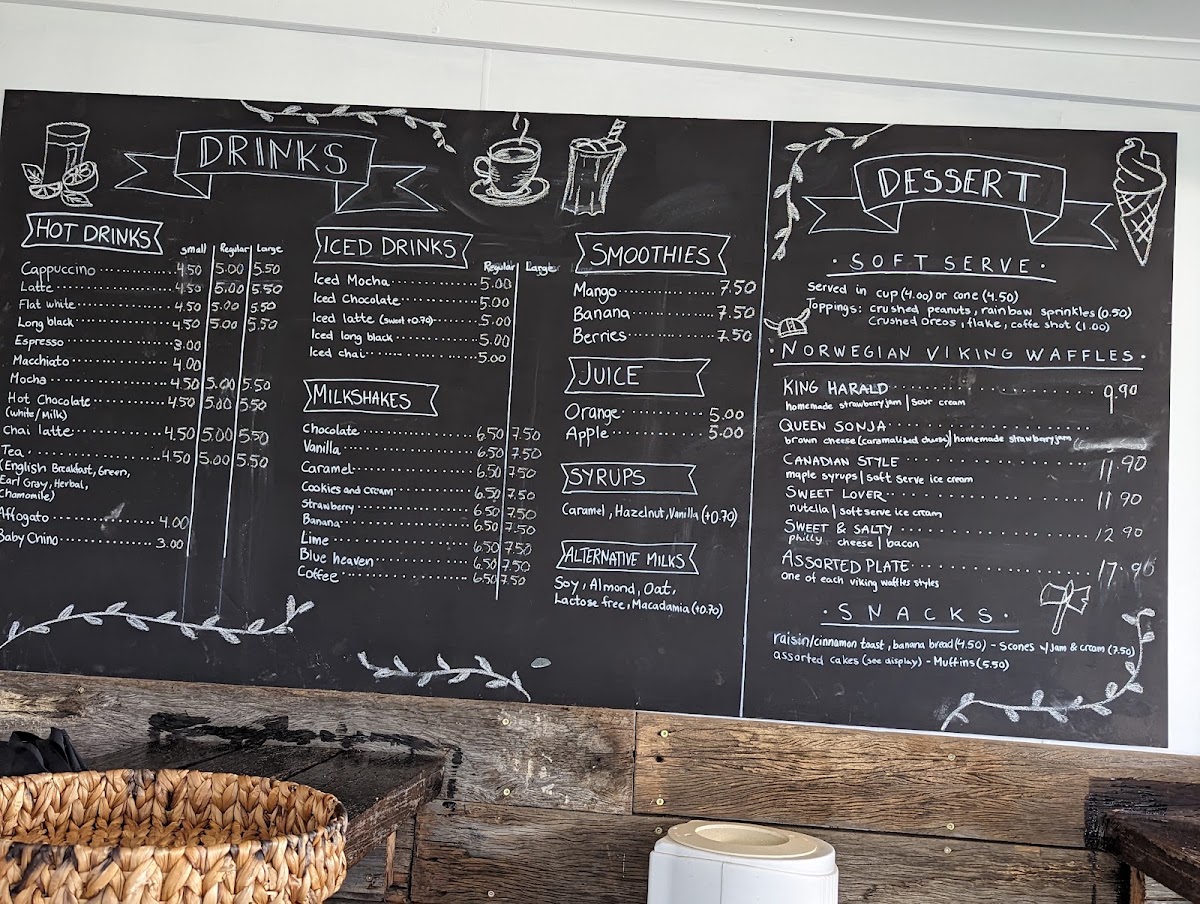 DRINKS
HOT DRINKS
small Regular Large
Cappuccino 4.50 5.00 5.50
Latte 4.50 5.00 5.50
Flat white 4.50 5.00 5.50
Long black 4.50 5.00 5.50
Espresso 3.00
Macchiato 4.00
Mocha 4.50 5.00 5.50
Hot Chocolate 4.50 5.00 5.50
(White/Milk)
Chai latte 4.50 5.00 5.50
Tea 4.50 5.00 5.50
(English Breakfast, Green,
Earl Gray, Herbal,
Chamomile)
Affogato 4.00
Baby Chino 3.00
ICED DRINKS
Regular Large
Iced Mocha 5.00
Iced Chocolate 5.00
Iced latte (sweet +0.70) 5.00
Iced long black 5.00
Iced chai 5.00
MILKSHAKES
Chocolate 6.50 7.50
Vanilla 6.50 7.50
Caramel 6.50 7.50
Cookies and cream 6.50 7.50
Strawberry 6.50 7.50
Banana 6.50 7.50
Lime 6.50 7.50
Blue heaven 6.50 7.50
Coffee 6.50 7.50
SMOOTHIES
Mango 7.50
Banana 7.50
Berries 7.50
JUICE
Orange 5.00
Apple 5.00
SYRUPS
Caramel, Hazelnut, Vanilla (+0.70)
ALTERNATIVE MILKS
Soy, Almond, Oat,
Lactose free, Macadamia (+0.70)
DESSERT
SOFT SERVE
Served in cup (4.00) or cone (4.50)
Toppings: crushed peanuts, rainbow sprinkles (0.50)
crushed oreos, flake, coffe shot (1.00)
NORWEGIAN VIKING WAFFLES
KING HARALD 9.90
homemade strawberry jam | sour cream
QUEEN SONJA
brown cheese (caramalised cheese) | homemade strawberry jam
CANADIAN STYLE 11.90
maple syrups | soft serve ice cream
SWEET LOVER 11.90
nutella | soft serve ice cream
SWEET & SALTY 12.90
philly cheese | bacon
ASSORTED PLATE 17.90
one of each viking waffles styles
SNACKS
raisin/cinnamon toast, banana bread (4.50) - Scones w/ Jam & cream (7.50)
assorted cakes (see display) - Muffins (5.50)